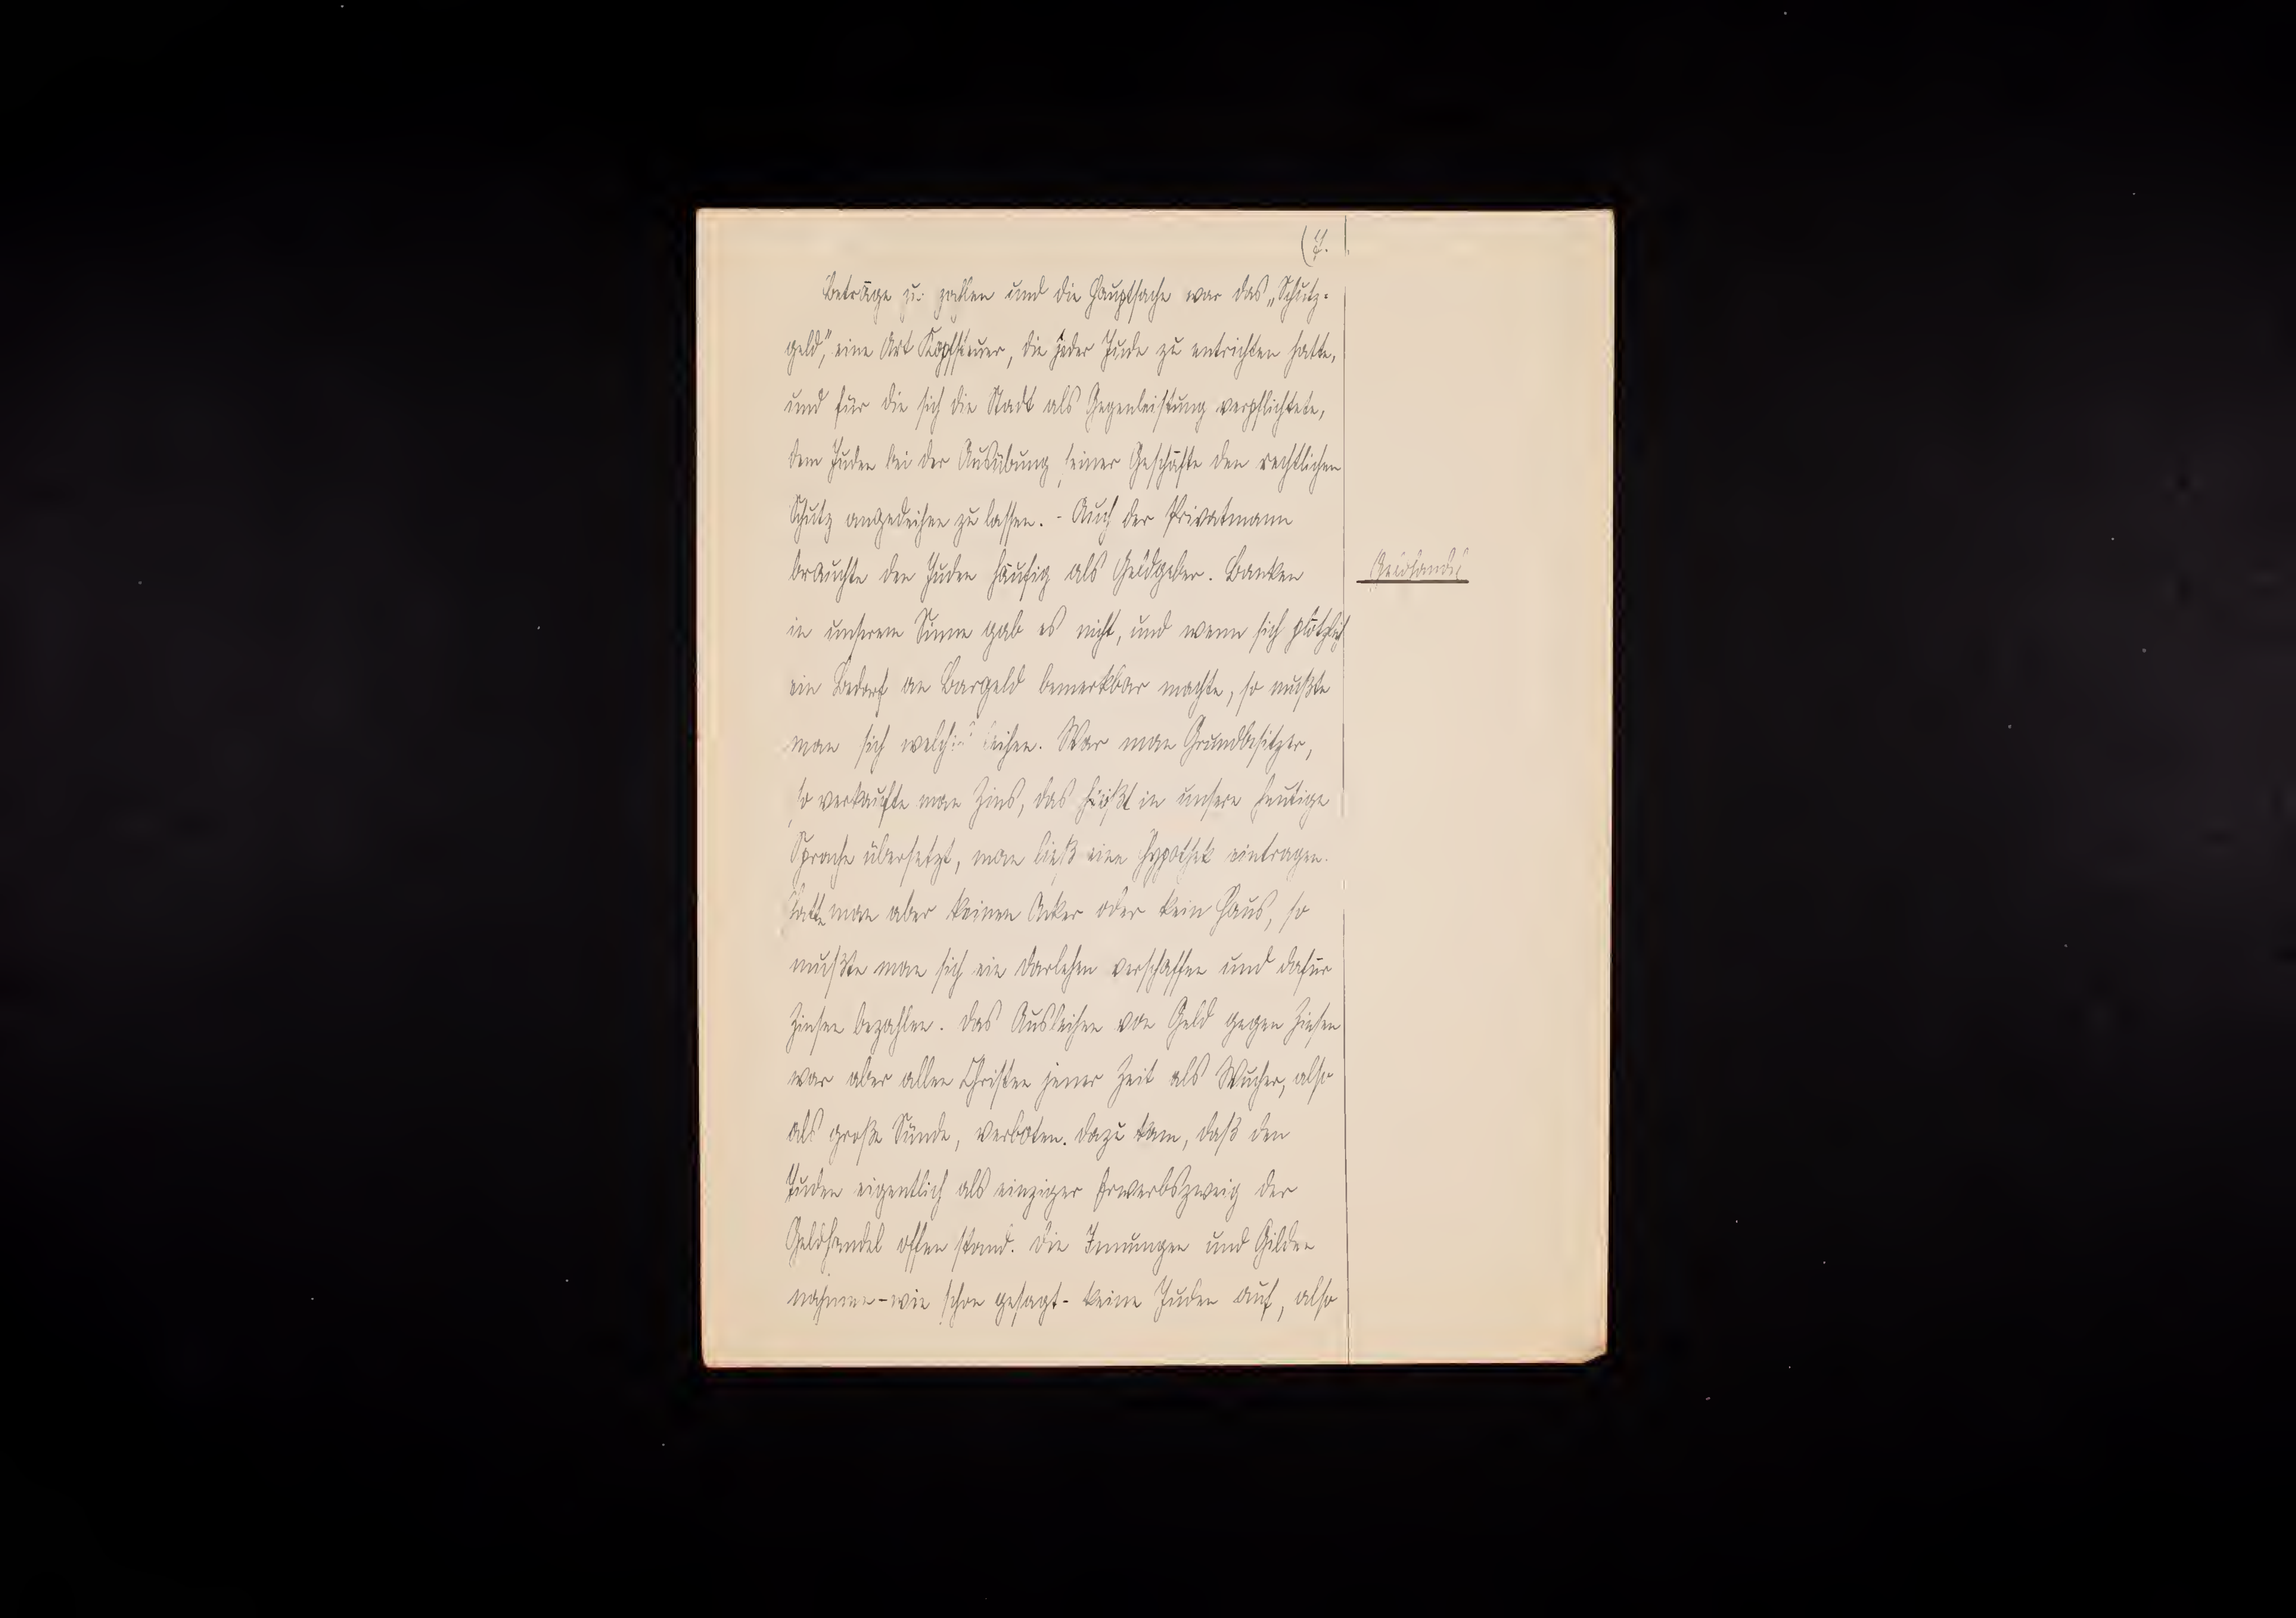 Beträge zu zahlen und die Hauptsache war das „Schutz-
geld", eine Art Kopfsteuer, die jeder Jude zu entrichten hatte,
und für die sich die Stadt als Gegenleistung verpflichtete,
dem Juden bei der Ausübung seiner Geschäfte den rechtlichen
Schutz angedeihen zu lassen. - Auch der Privatmann
brauchte den Juden häufig als Geldgeber. Banken
Geldhandel
in unserem Sinne gab es nicht, und wenn sich plötzlich
ein Bedarf an Bargeld bemerkbar machte, so mußte
man sich welches leihen. War man Grundbesitzer,
so verkaufte man Zins, das heißt in unsere heutige
Sprache übersetzt, man ließ eine Hypothek eintragen.
Hatte man aber keinen Acker oder kein Haus, so
mußte man sich ein Darlehen verschaffen und dafür
Zinsen bezahlen. Das Ausleihen von Geld gegen Zinsen
war aber allen Christen jener Zeit als Wucher, also
als große Sünde, verboten. Dazu kam, daß den
Juden eigentlich als einziger Erwerbszweig der
Geldhandel offen stand. Die Innungen und Gilden
nahmen - wie schon gesagt - keine Juden auf, also